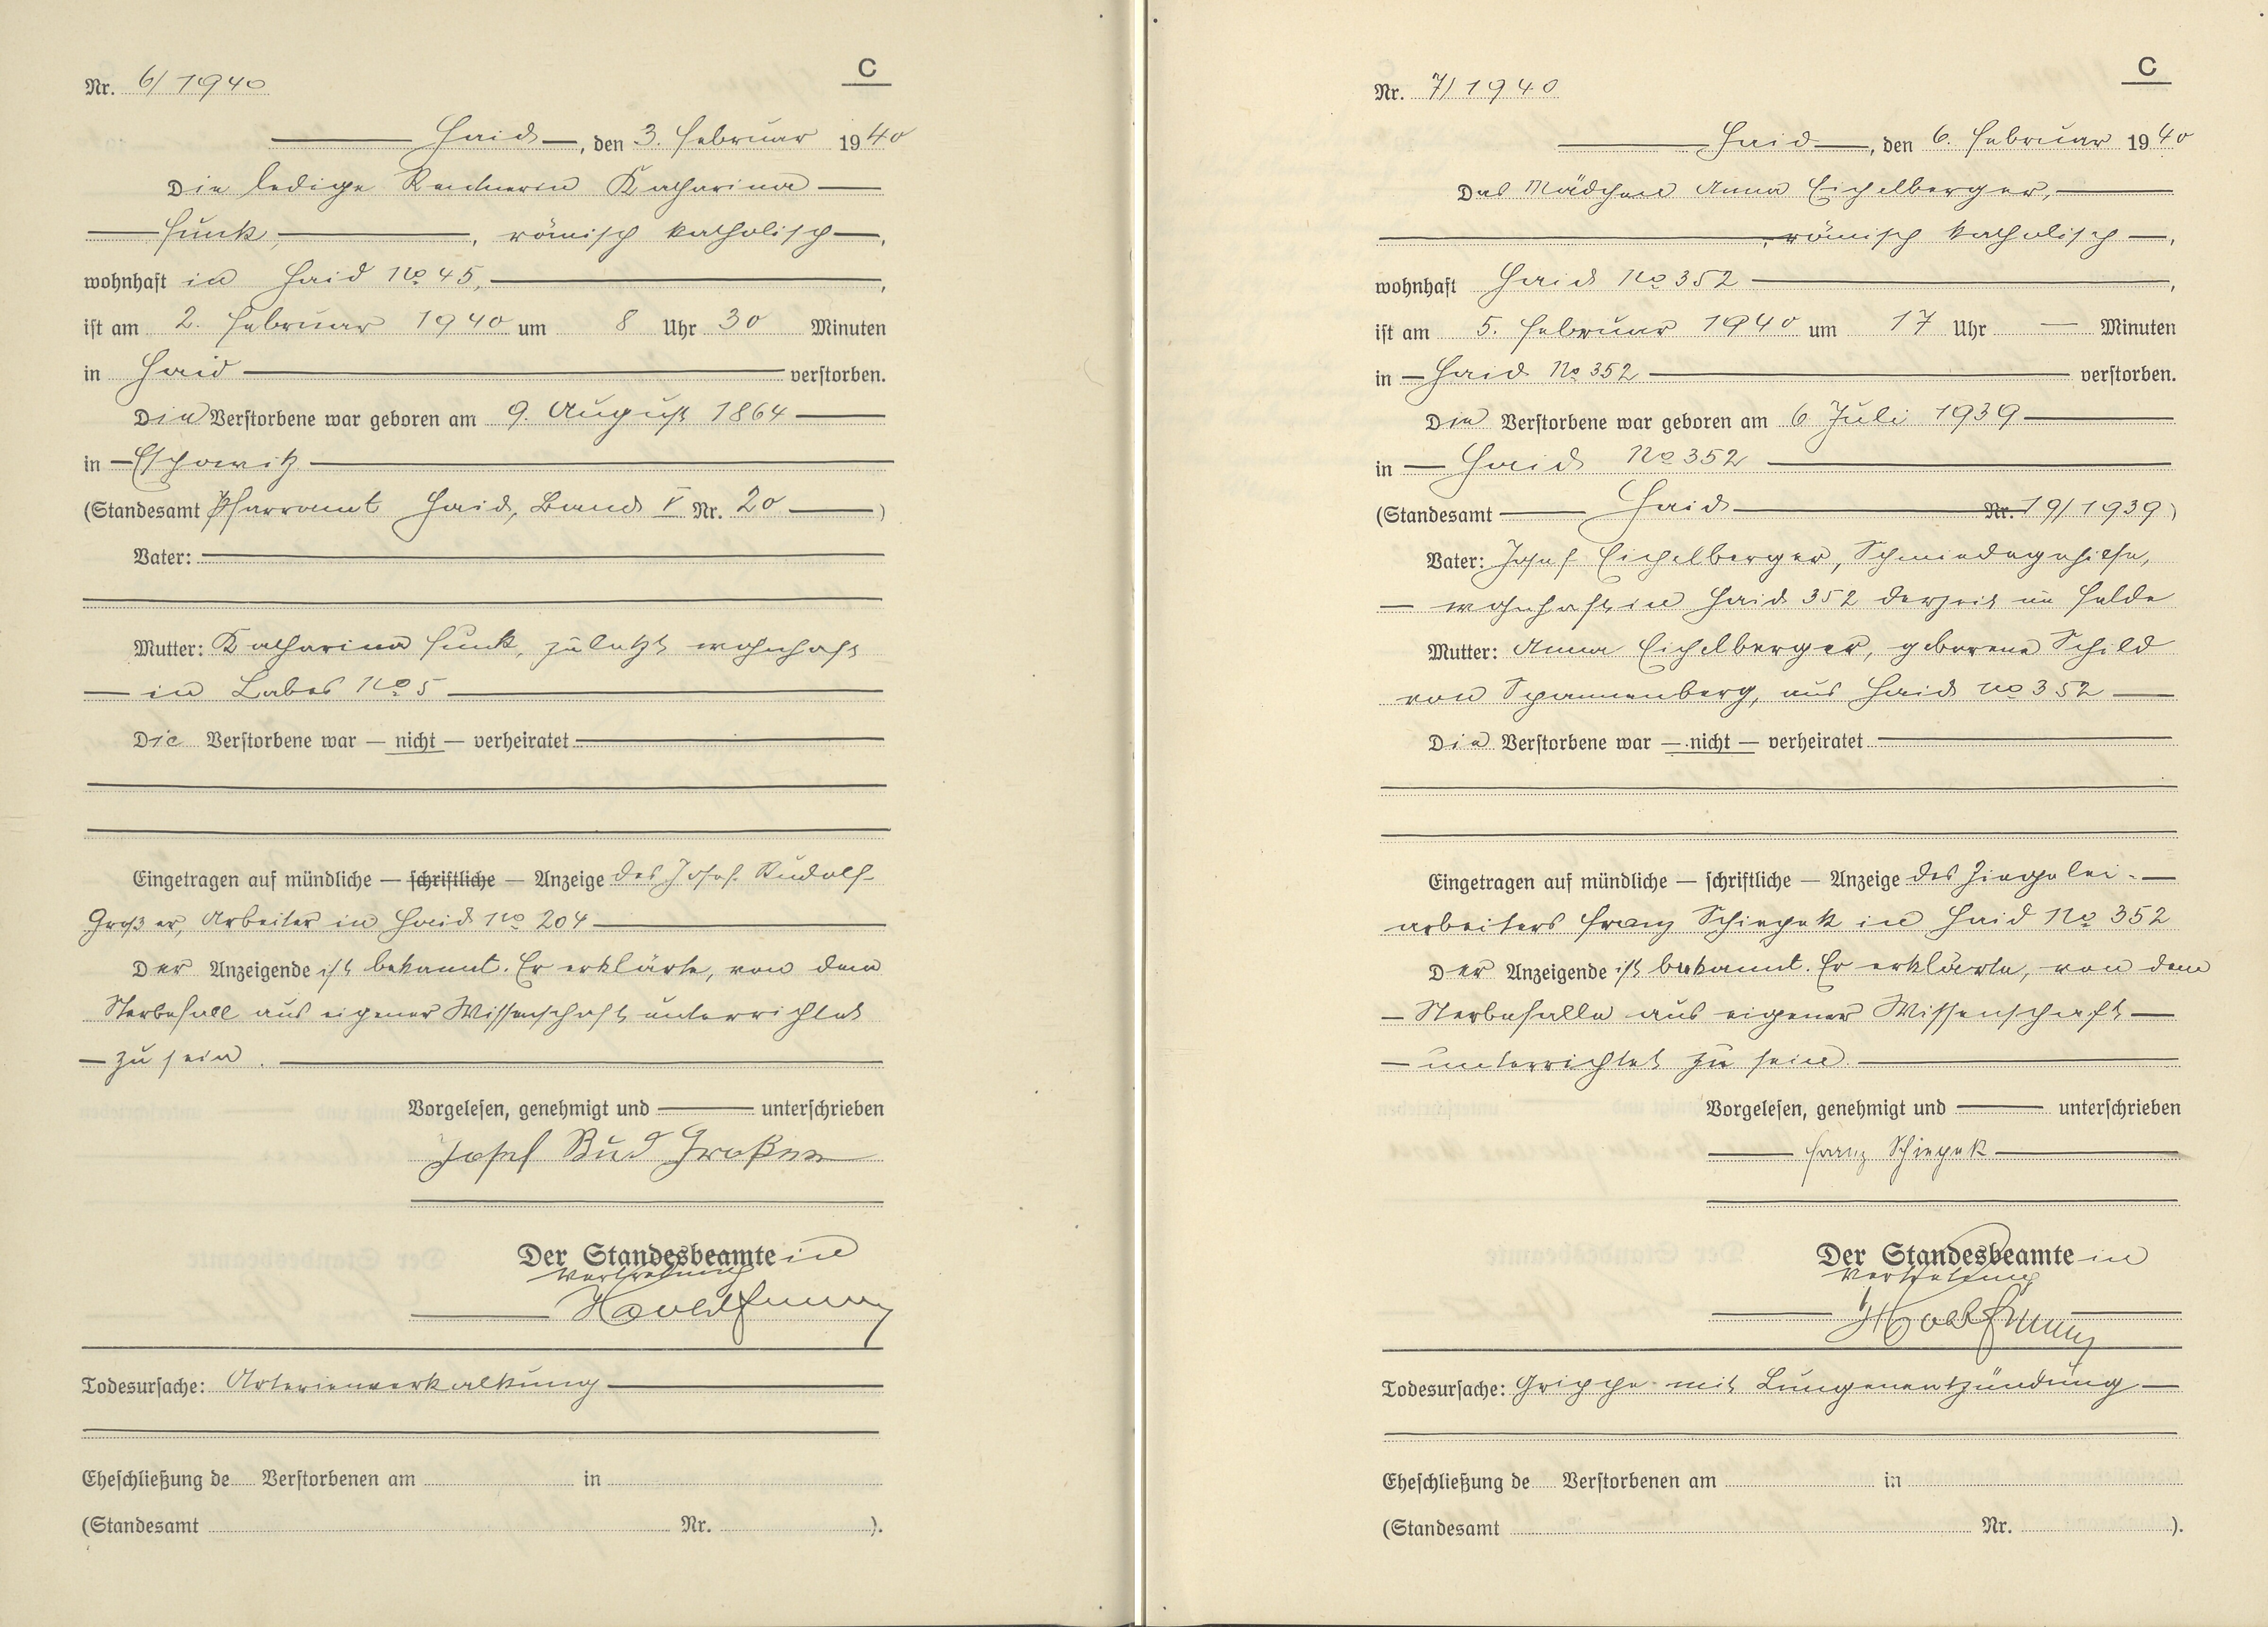 C
Nr. 6/1940
Haid, den 3. Februar 1940
Die ledige Rentnerin Katharina
Funk, römisch katholisch,
wohnhaft in Haid No 45,
ist am 2. Februar 1940 um 8 Uhr 30 Minuten
in Haid verstorben.
Die Verstorbene war geboren am 9. August 1864
in Eschowitz
(Standesamt Pfarramt Haid, Band V Nr. 20)
Vater:
Mutter: Katharina Funk, zuletzt wohnhaft
in Labes No 5
Die Verstorbene war — nicht — verheiratet
Eingetragen auf mündliche — schriftliche — Anzeige des Josef Rudolf
Großer, Arbeiter in Haid No 204
Der Anzeigende ist bekannt. Er erklärte, von dem
Sterbefall aus eigener Wissenschaft unterrichtet
zu sein.
Vorgelesen, genehmigt und unterschrieben
Josef Rud Großer
Der Standesbeamte in
Vertretung
Todesursache: Arterienverkalkung
Eheschließung de Verstorbenen am in
(Standesamt Nr. ).
C
Nr. 7/1940
Haid, den 6. Februar 1940
Das Mädchen Anna Eichelberger,
, römisch katholisch,
wohnhaft Haid No 352
ist am 5. Februar 1940 um 17 Uhr — Minuten
in Haid No 352 verstorben.
Die Verstorbene war geboren am 6 Juli 1939
in Haid No 352
(Standesamt Haid Nr. 19/1939)
Vater: Josef Eichelberger, Schmiedegehilfe,
wohnhaft in Haid 352 derzeit im Felde
Mutter: Anna Eichelberger, geborene Schild
von Spannenberg, aus Haid No 352
Die Verstorbene war — nicht — verheiratet
Eingetragen auf mündliche — schriftliche — Anzeige des Ziegelei-
arbeiters Franz Schiepek in Haid No 352
Der Anzeigende ist bekannt. Er erklärte, von dem
Sterbefalle aus eigener Wissenschaft
unterrichtet zu sein.
Vorgelesen, genehmigt und unterschrieben
Franz Schiepek
Der Standesbeamte in
Vertretung
Todesursache: Grippe mit Lungenentzündung
Eheschließung de Verstorbenen am in
(Standesamt Nr. ).